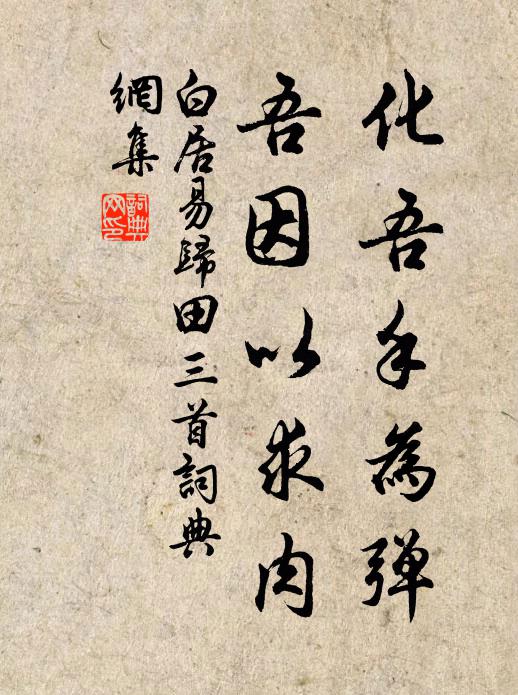 化吾手為彈
吾因以求肉
白居易歸田三首詞典
網集
詞典網印